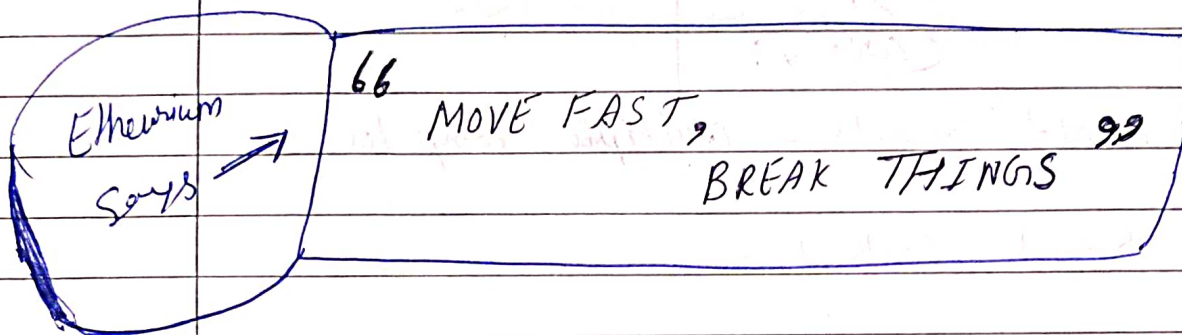 Ethewrium
says
“ MOVE FAST,
BREAK THINGS ”